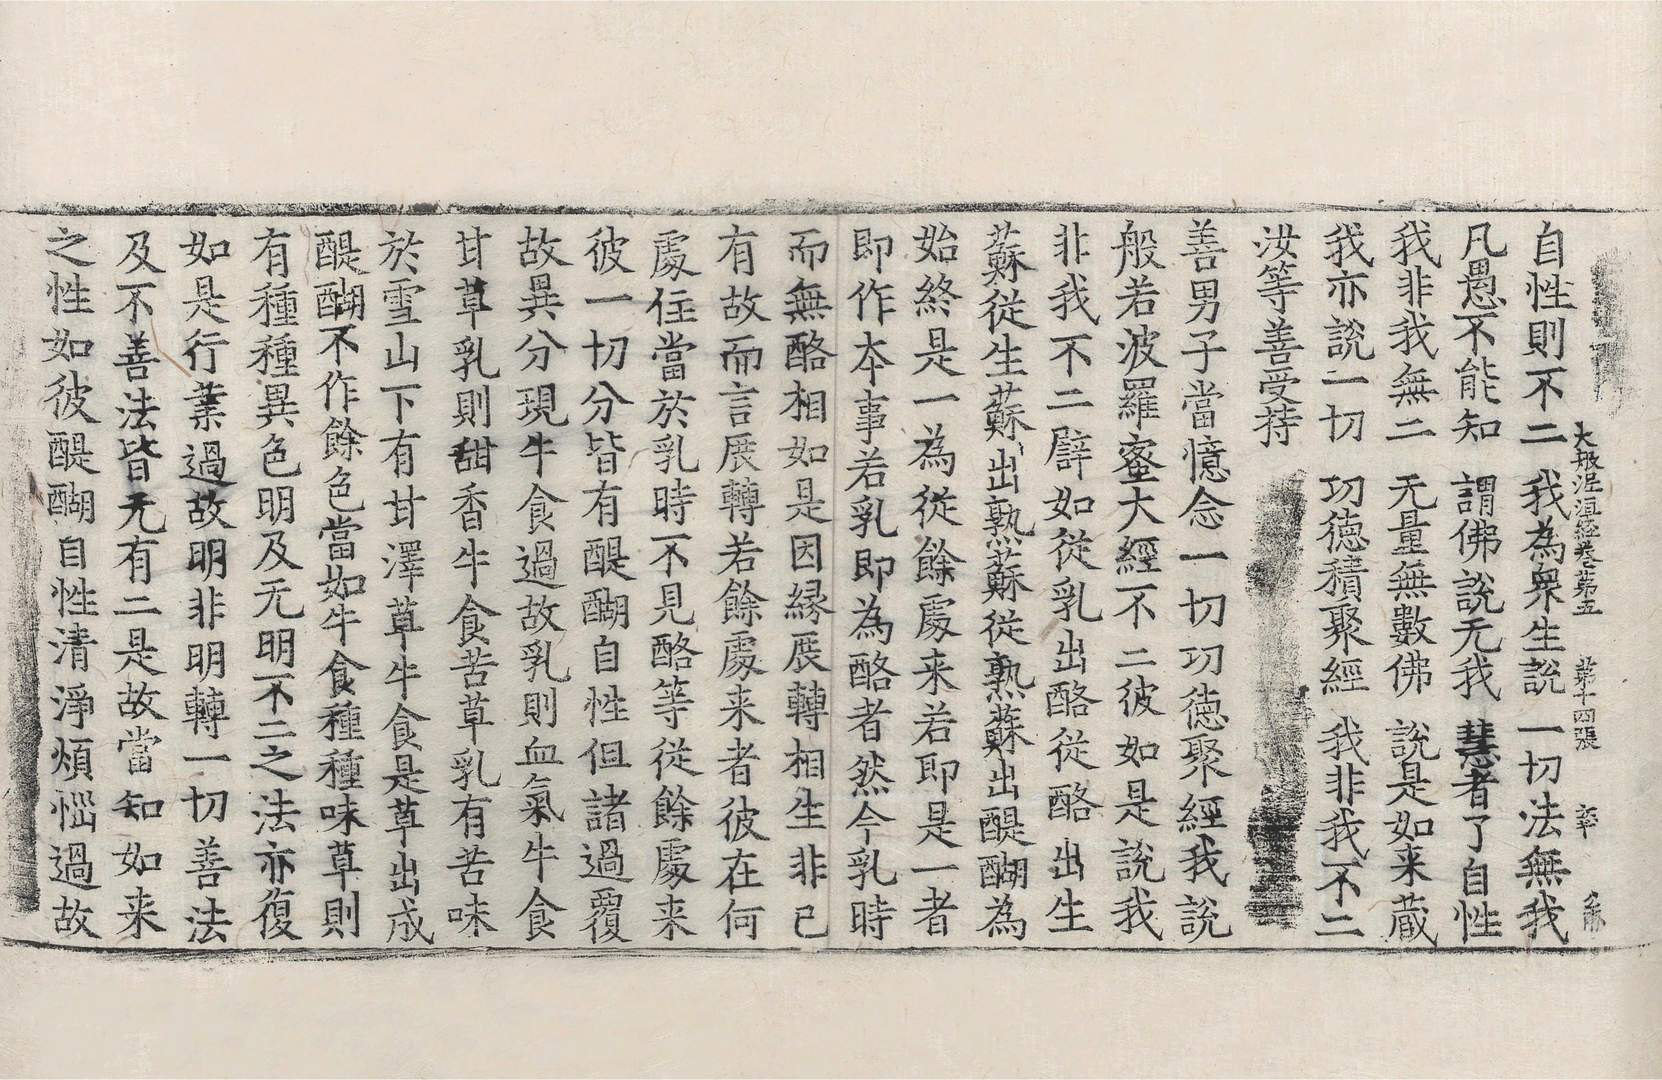 大般泥洹經卷第五 第十四張
自性則不二 我為衆生說 一切法無我
凡愚不能知 謂佛說无我 慧者了自性
我非我無二 无量無數佛 說是如来蔵
我亦說一切 功徳積聚經 我非我不二
汝等善受持
善男子當憶念一切功徳聚經我說
般若波羅蜜大經不二彼如是說我
非我不二譬如從乳出酪從酪出生
蘇從生蘇出熟蘇從熟蘇出醍醐為
始終是一為從餘處来若即是一者
即作本事若乳即為酪者然今乳時
而無酪相如是因縁展轉相生非已
有故而言展轉若餘處来者彼在何
處住當於乳時不見酪等從餘處来
彼一切分皆有醍醐自性但諸過覆
故異分現牛食過故乳則血氣牛食
甘草乳則甜香牛食苦草乳有苦味
於雪山下有甘澤草牛食是草出成
醍醐不作餘色當如牛食種種味草則
有種種異色明及无明不二之法亦復
如是行業過故明非明轉一切善法
及不善法皆无有二是故當知如来
之性如彼醍醐自性清淨煩惱過故